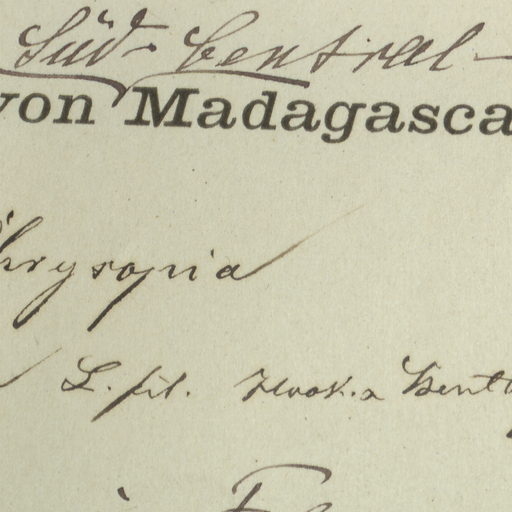 Süd-Central-
von Madagasca
Chrysopia
L. fil. Hook. & Benth